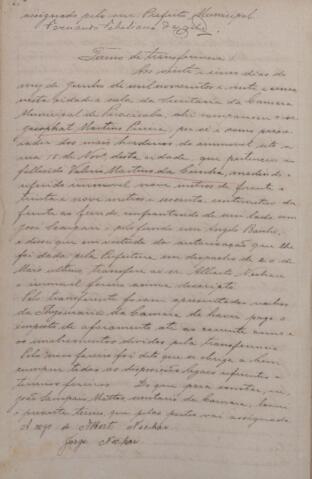 assignado pelo snr. Prefeito Municipal
Fernando Febeliano da Costa
Termo de transferencia
Aos vinte e cinco dias do
mez de Junho de mil novecentos e vinte e cinco
nesta cidade e sala da Secretaria da Camara
Municipal de Piracicaba, ahi compareceu o sr.
Josaphat Martins Pereira, por si e como procu-
rador dos mais herdeiros do immovel sito a
rua 15 de Nov. desta cidade, que pertenceu ao
fallecido Valerio Martins da Cunha, medindo o
referido immovel nove metros de frente e
trinta e nove metros e sessenta centimetros da
frente ao fundo, confrontando de um lado com
José e pelo fundo com Angelo
e disse que em vista da autorização que lhe
foi dada pela Prefeitura em despacho de 20 de
Maio ultimo, transfere ao sr. Alberto Nechar
o immovel foreiro acima descripto
Pelo transferente foram apresentados recibos
da Thesouraria da Camara de haver pago o
imposto de aforamento até ao corrente anno e
os emolumentos devidos pela transferencia
Pelo novo foreiro foi dito que se obriga a bem
cumprir todas as disposições legaes referentes a
terrenos foreiros. Do que para constar, eu,
João Sampaio Mattos secretario da Camara, lavrei
o presente termo, que pelas partes vai assignado.
A rogo de Albert Nechar
Jorge Nechar